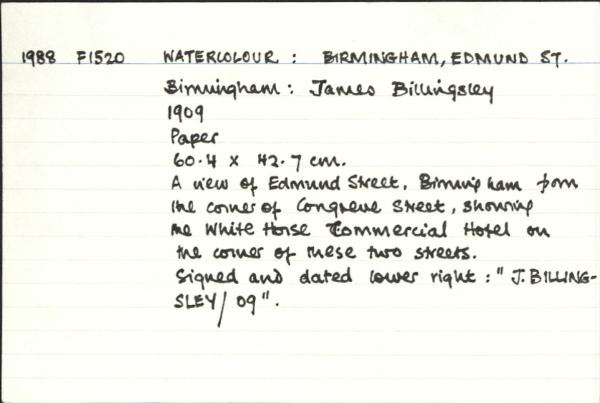 1988 F1520 WATERCOLOUR : BIRMINGHAM, EDMUND ST.
Birmingham : James Billingsley
1909
Paper
60.4 x 42.7 cm.
A view of Edmund Street, Birmingham from
the corner of Congreve Street, showing
the White Horse Commercial Hotel on
the corner of these two streets.
Signed and dated lower right : " J. BILLING-
SLEY / 09 ".